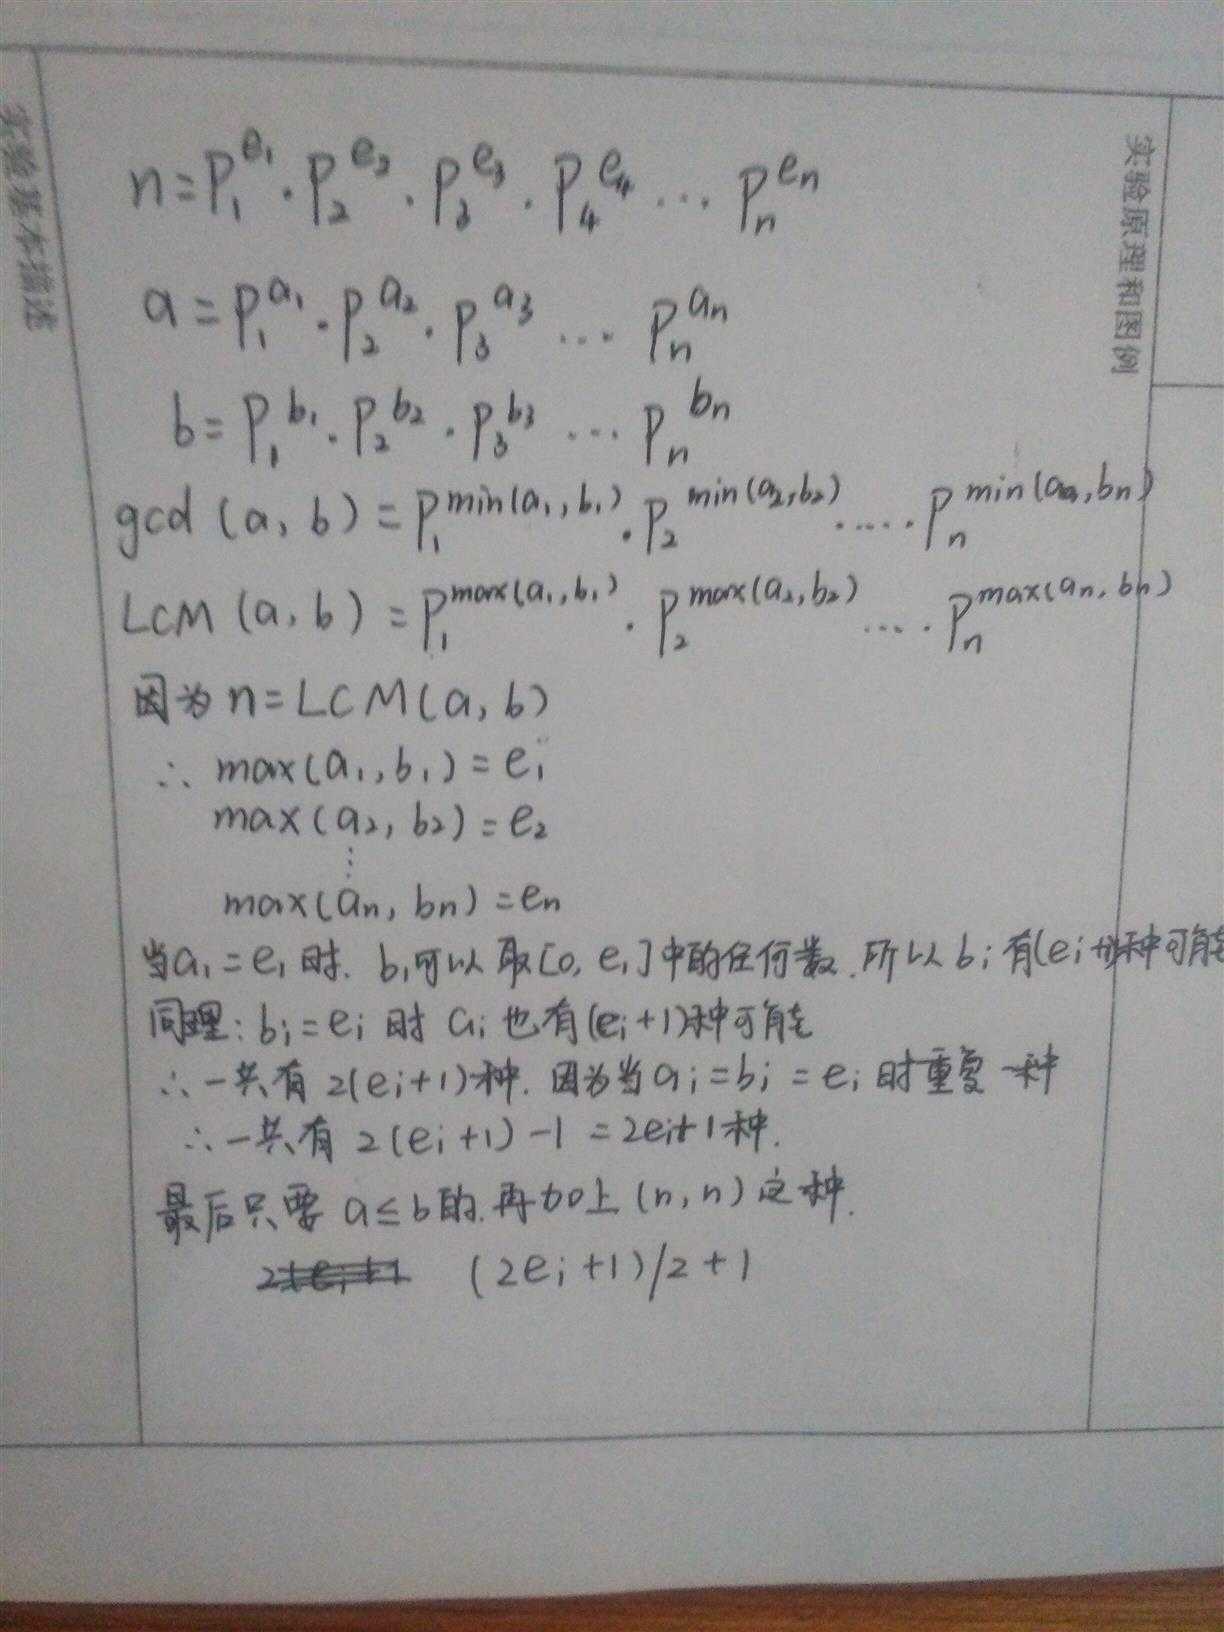 实验基本描述
实验原理和图例
n=P₁^e₁·P₂^e₂·P₃^e₃·P₄^e₄…Pₙ^eₙ
a=P₁^a₁·P₂^a₂·P₃^a₃…Pₙ^aₙ
b=P₁^b₁·P₂^b₂·P₃^b₃…Pₙ^bₙ
gcd(a,b)=P₁^min(a₁,b₁)·P₂^min(a₂,b₂)·….Pₙ^min(aₙ,bₙ)
LCM(a,b)=P₁^max(a₁,b₁)·P₂^max(a₂,b₂)….Pₙ^max(aₙ,bₙ)
因为n=LCM(a,b)
∴ max(a₁,b₁)=e₁
max(a₂,b₂)=e₂
⋮
max(aₙ,bₙ)=eₙ
当a₁=e₁时.b₁可以取[0,e₁]中的任何数.所以bᵢ有(eᵢ+1)种可能
同理:bᵢ=eᵢ时aᵢ也有(eᵢ+1)种可能
∴一共有2(eᵢ+1)种.因为当aᵢ=bᵢ=eᵢ时重复一种
∴一共有2(eᵢ+1)-1=2eᵢ+1种.
最后只要a≤b的.再加上(n,n)这种.
(2eᵢ+1)/2+1